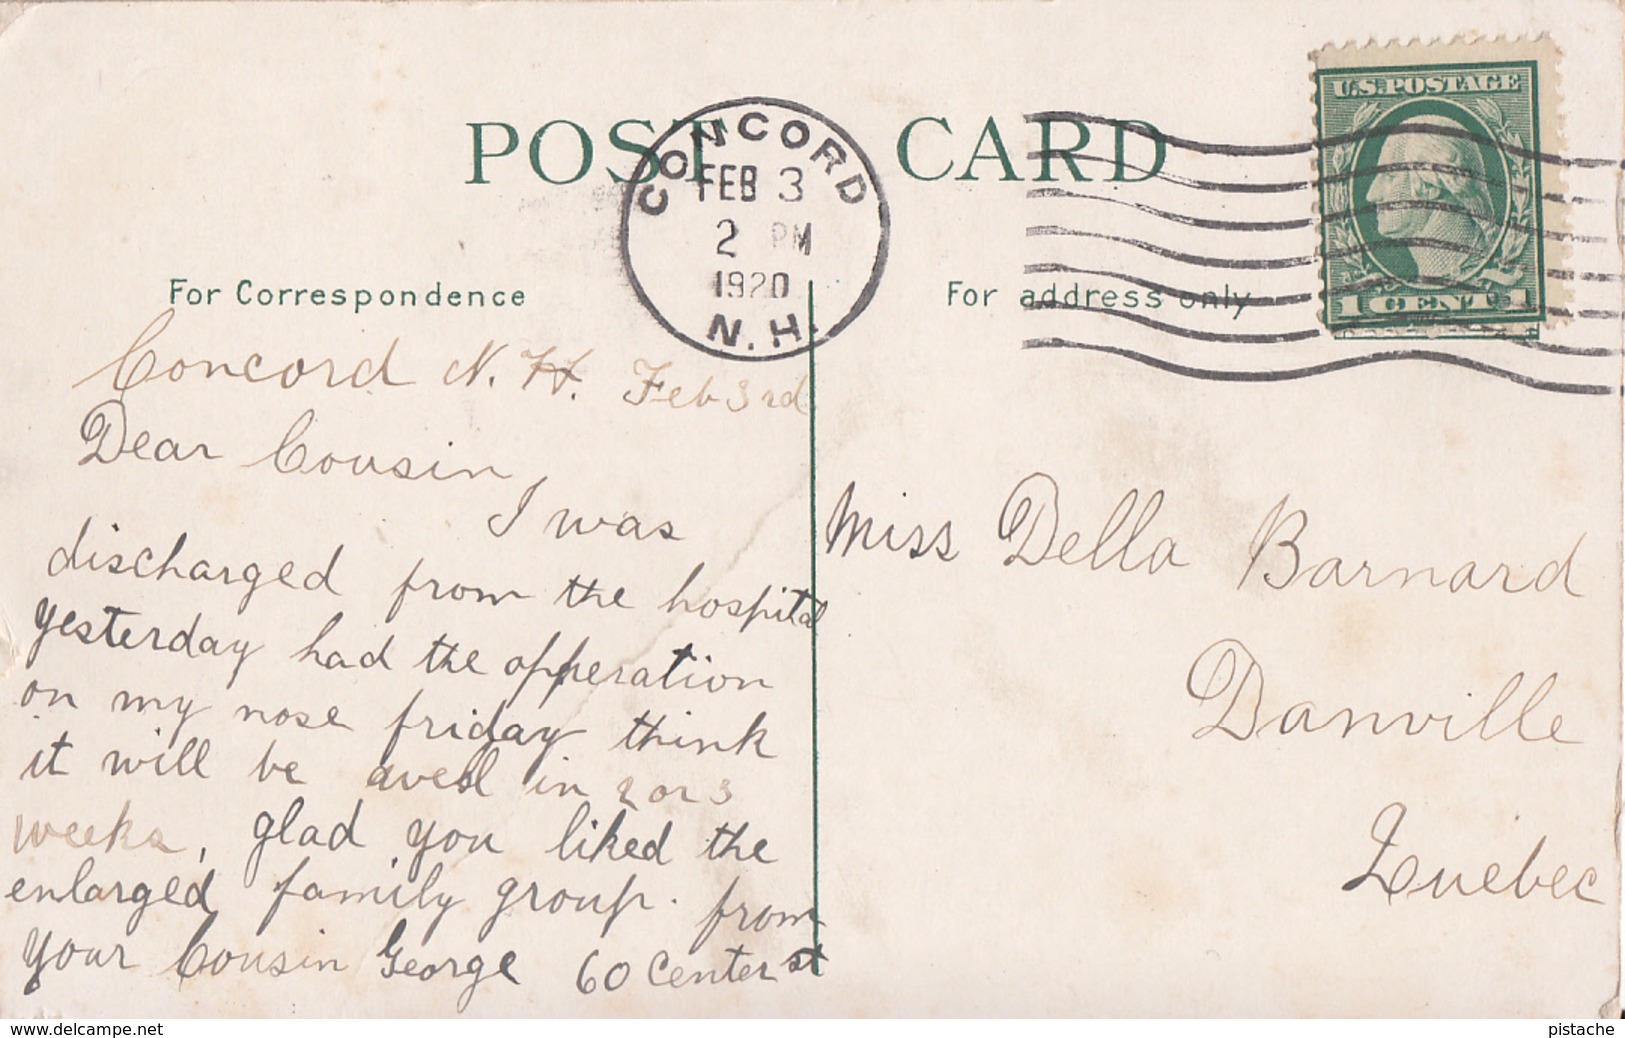 POST CARD
CONCORD
FEB 3
2 PM
1920
N.H.
U.S. POSTAGE
1 CENT 1
For Correspondence
For address only
Concord N. H. Feb 3rd
Dear Cousin,
I was
discharged from the hospital
yesterday had the opperation
on my nose friday think
it will be in 2 or 3
weeks, glad you liked the
enlarged family group. from
your Cousin George 60 Center st
Miss Della Barnard
Danville
Quebec
www.delcampe.net
pistache